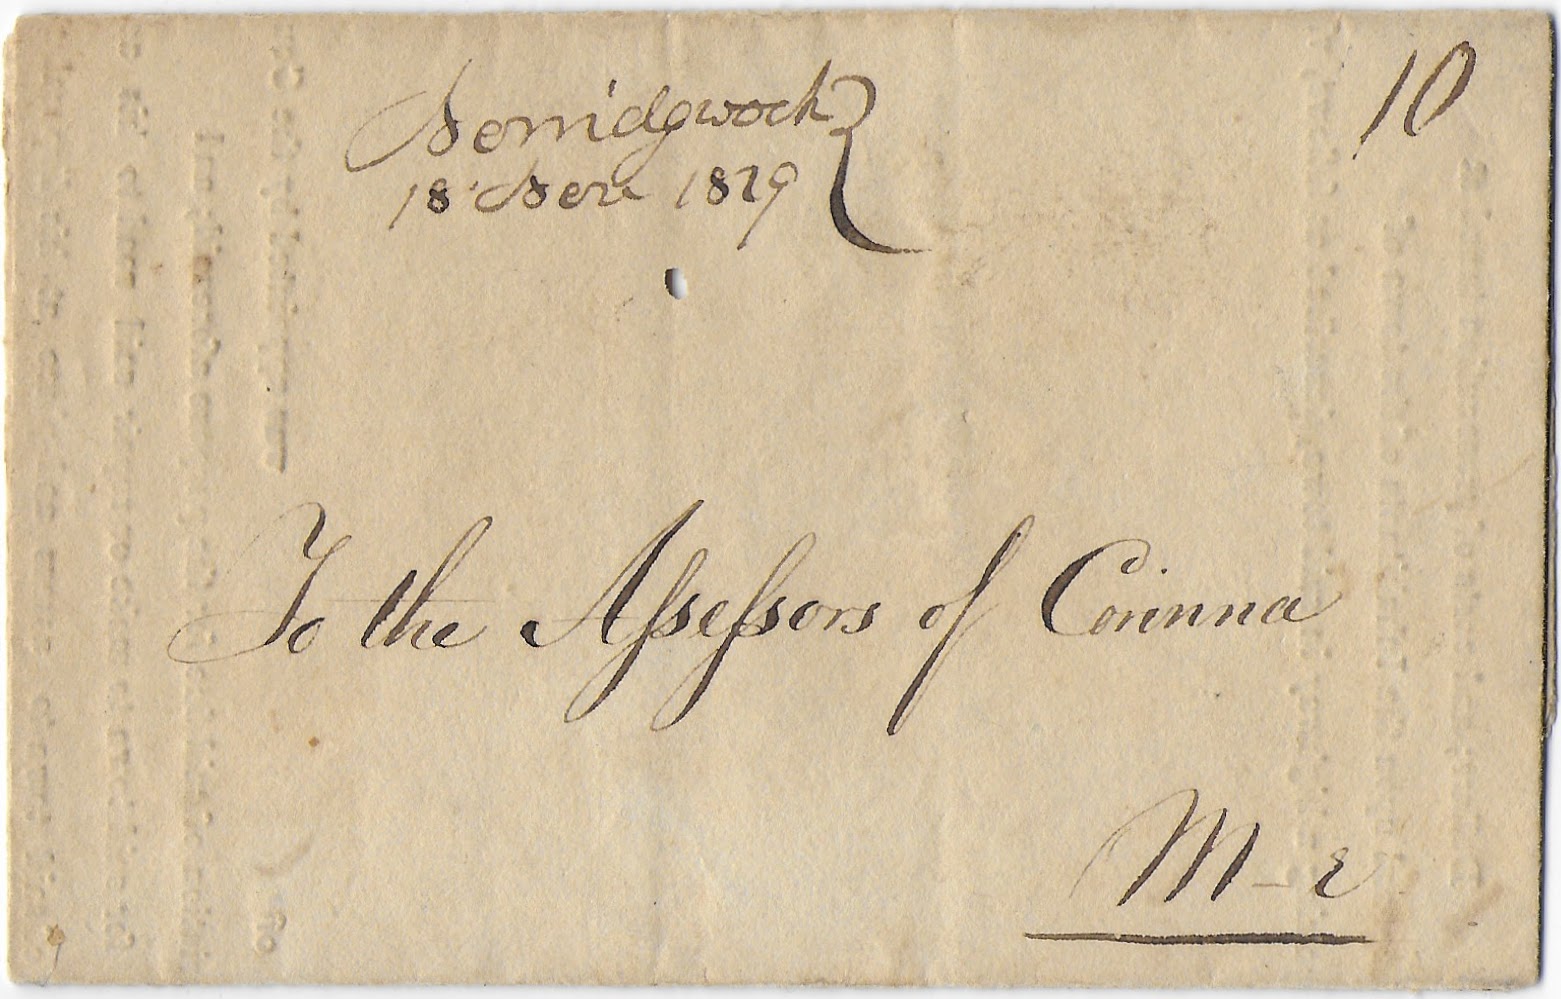 Norridgwock
18 Novr 1829
10
To the Assessors of Corinna
M-e